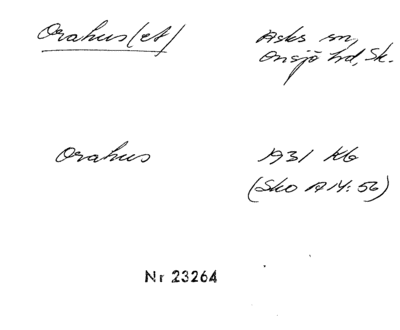 Orahus(et) Asks sn,
Onsjö hd, Sk.
Orahus 1931 KG
(Sko A14: 56)
Nr 23264